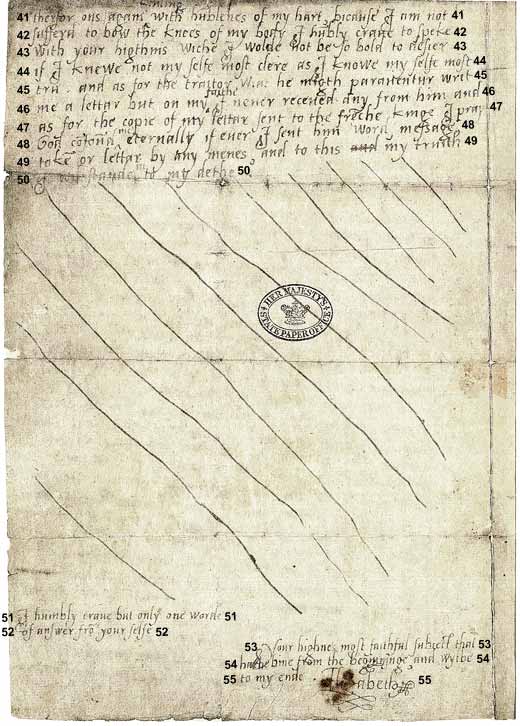 41 therfor ons again with hublenes of my hart, bicause I am not 41
42 sufferd to bow the knees of my body I hūbly crave to speke 42
43 with your higthnis wiche I wolde not be so bold to desier 43
44 if I knewe not my selfe most clere as I knowe my selfe most 44
45 tru. and as for the traitor Wiat he migth paraventur writ 45
faithe
46 me a lettar but on my I never receved any from him and 46
47 as for the copie of my lettar sent to the freche kinge I pray 47
me
48 God eternally if ever I sent him word, message, 48
49 tokē or lettar by any menes, and to this and my truith 49
50 I wil stande in til my dethe 50
HER MAJESTY'S
STATE PAPER OFFICE
51 I humbly crave but only one worde 51
52 of answer frō your selfe 52
53 Your highnes most faithful subject that 53
54 hathe bine from the beginninge, and wylbe 54
55 to my ende Elizabeth 55